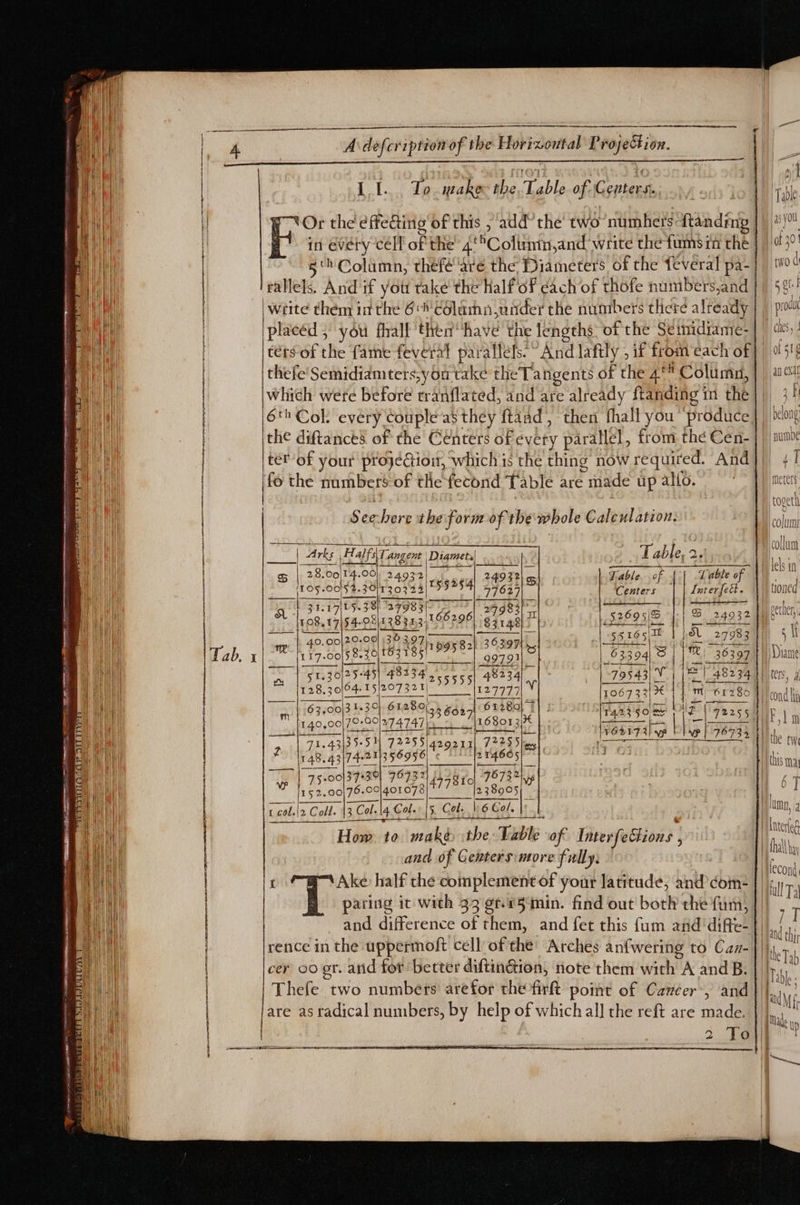 4 A deſcription of the Horizontal Projection.
II. To make the Table of Centers.
FOr the effecting of this, add the two numbers ſtanding
in every cell of the 4th Column, and write the ſums in the
5th Column, theſe are the Diameters of the ſeveral pa-
rallels. And if you take the half of each of thoſe numbers, and
write them in the 6th column, under the numbers there already
placed; you ſhall then have the lengths of the Semidiame-
ters of the ſame ſeveral parallels. And laſtly, if from each of
theſe Semidiamters, you take the Tangents of the 4th Column,
which were before tranſlated, and are already ſtanding in the
6th Col. every couple as they ſtand, then ſhall you produce
the diſtances of the Centers of every parallel, from the Cen-
ter of your projection, which is the thing now required. And
ſo the numbers of the ſecond Table are made up alſo.
See here the form of the whole Calculation.
Arks Halfs Tangent Diamets
Table, 2.
Table of Centers
Table of Interſect.
♋ 28.00 14.00 24932 155254 24932 ♋
105.00 52.30 130323 77627
♌ 31.17 15.38 27983 166296 27983 ♊
108.17 54.08 138313 83148
Tab. 1
♍ 40.00 20.00 36397 199582 36397 ♉
117.00 58.30 163185 99791
♎ 51.30 25.45 48234 255555 48234 ♈
128.30 64.15 207321 127777
♏ 63.00 31.30 61280 336027 61280 ♓
140.00 70.00 274747 168013
♐ 71.43 35.51 72255 429211 72255 ♒
148.43 74.21 356956 214605
♑ 75.00 37.30 76732 477810 76732 ♑
152.00 76.00 401078 238905
1 col. 2 Coll. 3 Col. 4 Col. 5 Col. 6 Col.
52695 ♋ ♋ 24932
55165 ♊ ♌ 27983
63394 ♉ ♍ 36397
79543 ♈ ♎ 48234
106733 ♓ ♏ 61280
142350 ♒ ♐ 72255
162173 ♑ ♑ 76732
How to make the Table of Interſections,
and of Centers more fully.
1 TAke half the complement of your latitude, and com-
paring it with 33 gr. 15 min. find out both the ſum,
and difference of them, and ſet this ſum and diffe-
rence in the uppermoſt cell of the Arches anſwering to Can-
cer 00 gr. and for better diſtinction, note them with A and B.
Theſe two numbers are for the firſt point of Cancer, and
are as radical numbers, by help of which all the reſt are made.
2 To